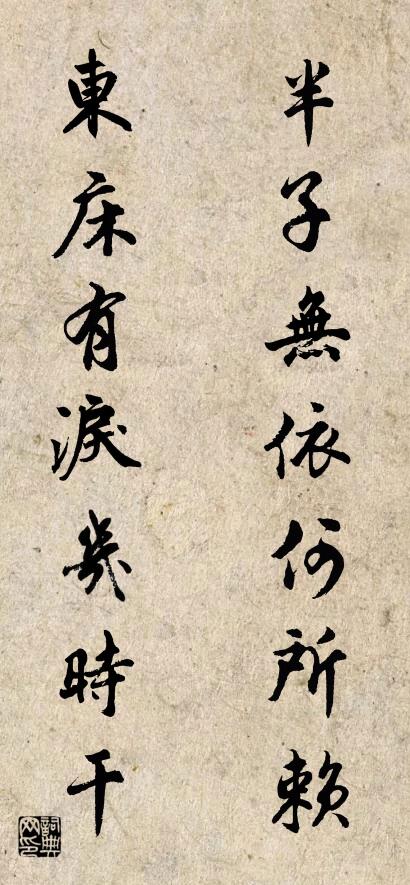 半子無依何所賴
東床有淚幾時干
詞典网印